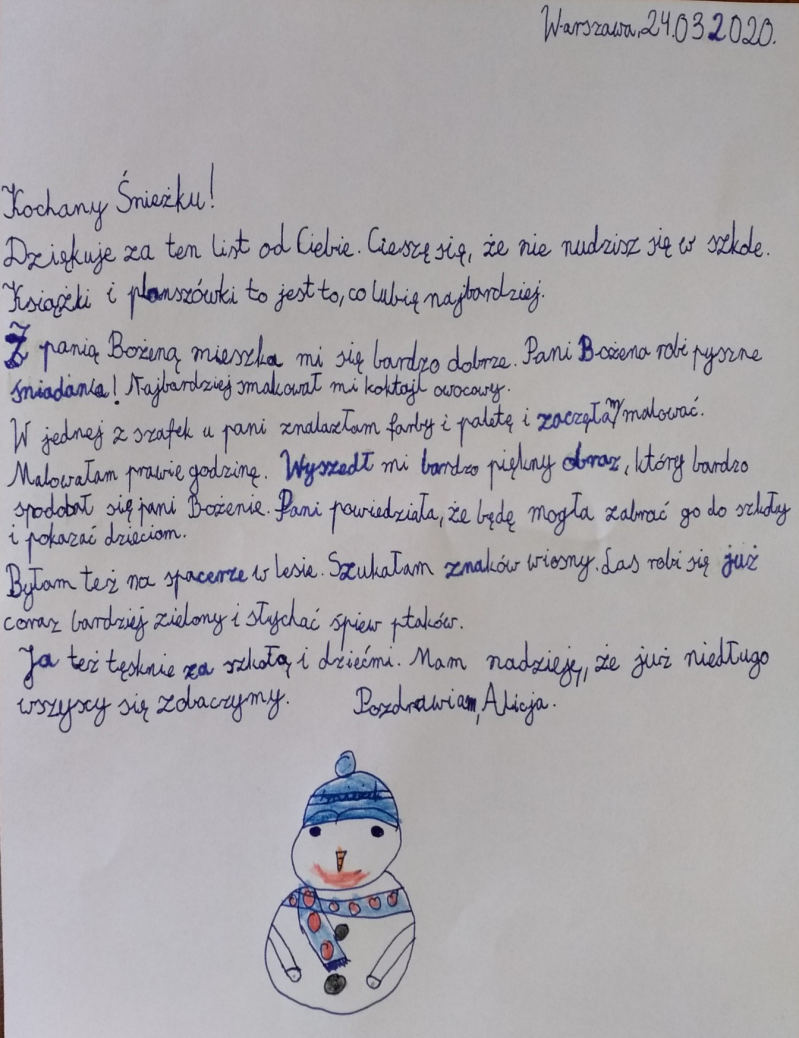 Warszawa, 24.03 2020.
Kochany Śnieżku!
Dziękuje za ten list od Ciebie. Cieszę się, że nie nudzisz się w szkole.
Książki i planszówki to jest to, co lubię najbardziej.
Z panią Bożeną mieszka mi się bardzo dobrze. Pani Bożena robi pyszne
śniadania! Najbardziej smakował mi koktajl owocowy.
W jednej z szafek u pani znalazłam farby i paletę i zaczęłam malować.
Malowałam prawie godzinę. Wyszedł mi bardzo piękny obraz, który bardzo
spodobał się pani Bożenie. Pani powiedziała, że będę mogła zabrać go do szkoły
i pokazać dzieciom.
Byłam też na spacerze w lesie. Szukałam znaków wiosny. Las robi się już
coraz bardziej zielony i słychać śpiew ptaków.
Ja też tęsknie za szkołą i dziećmi. Mam nadzieję, że już niedługo
wszyscy się zobaczymy. Pozdrawiam, Alicja.
śnieżek